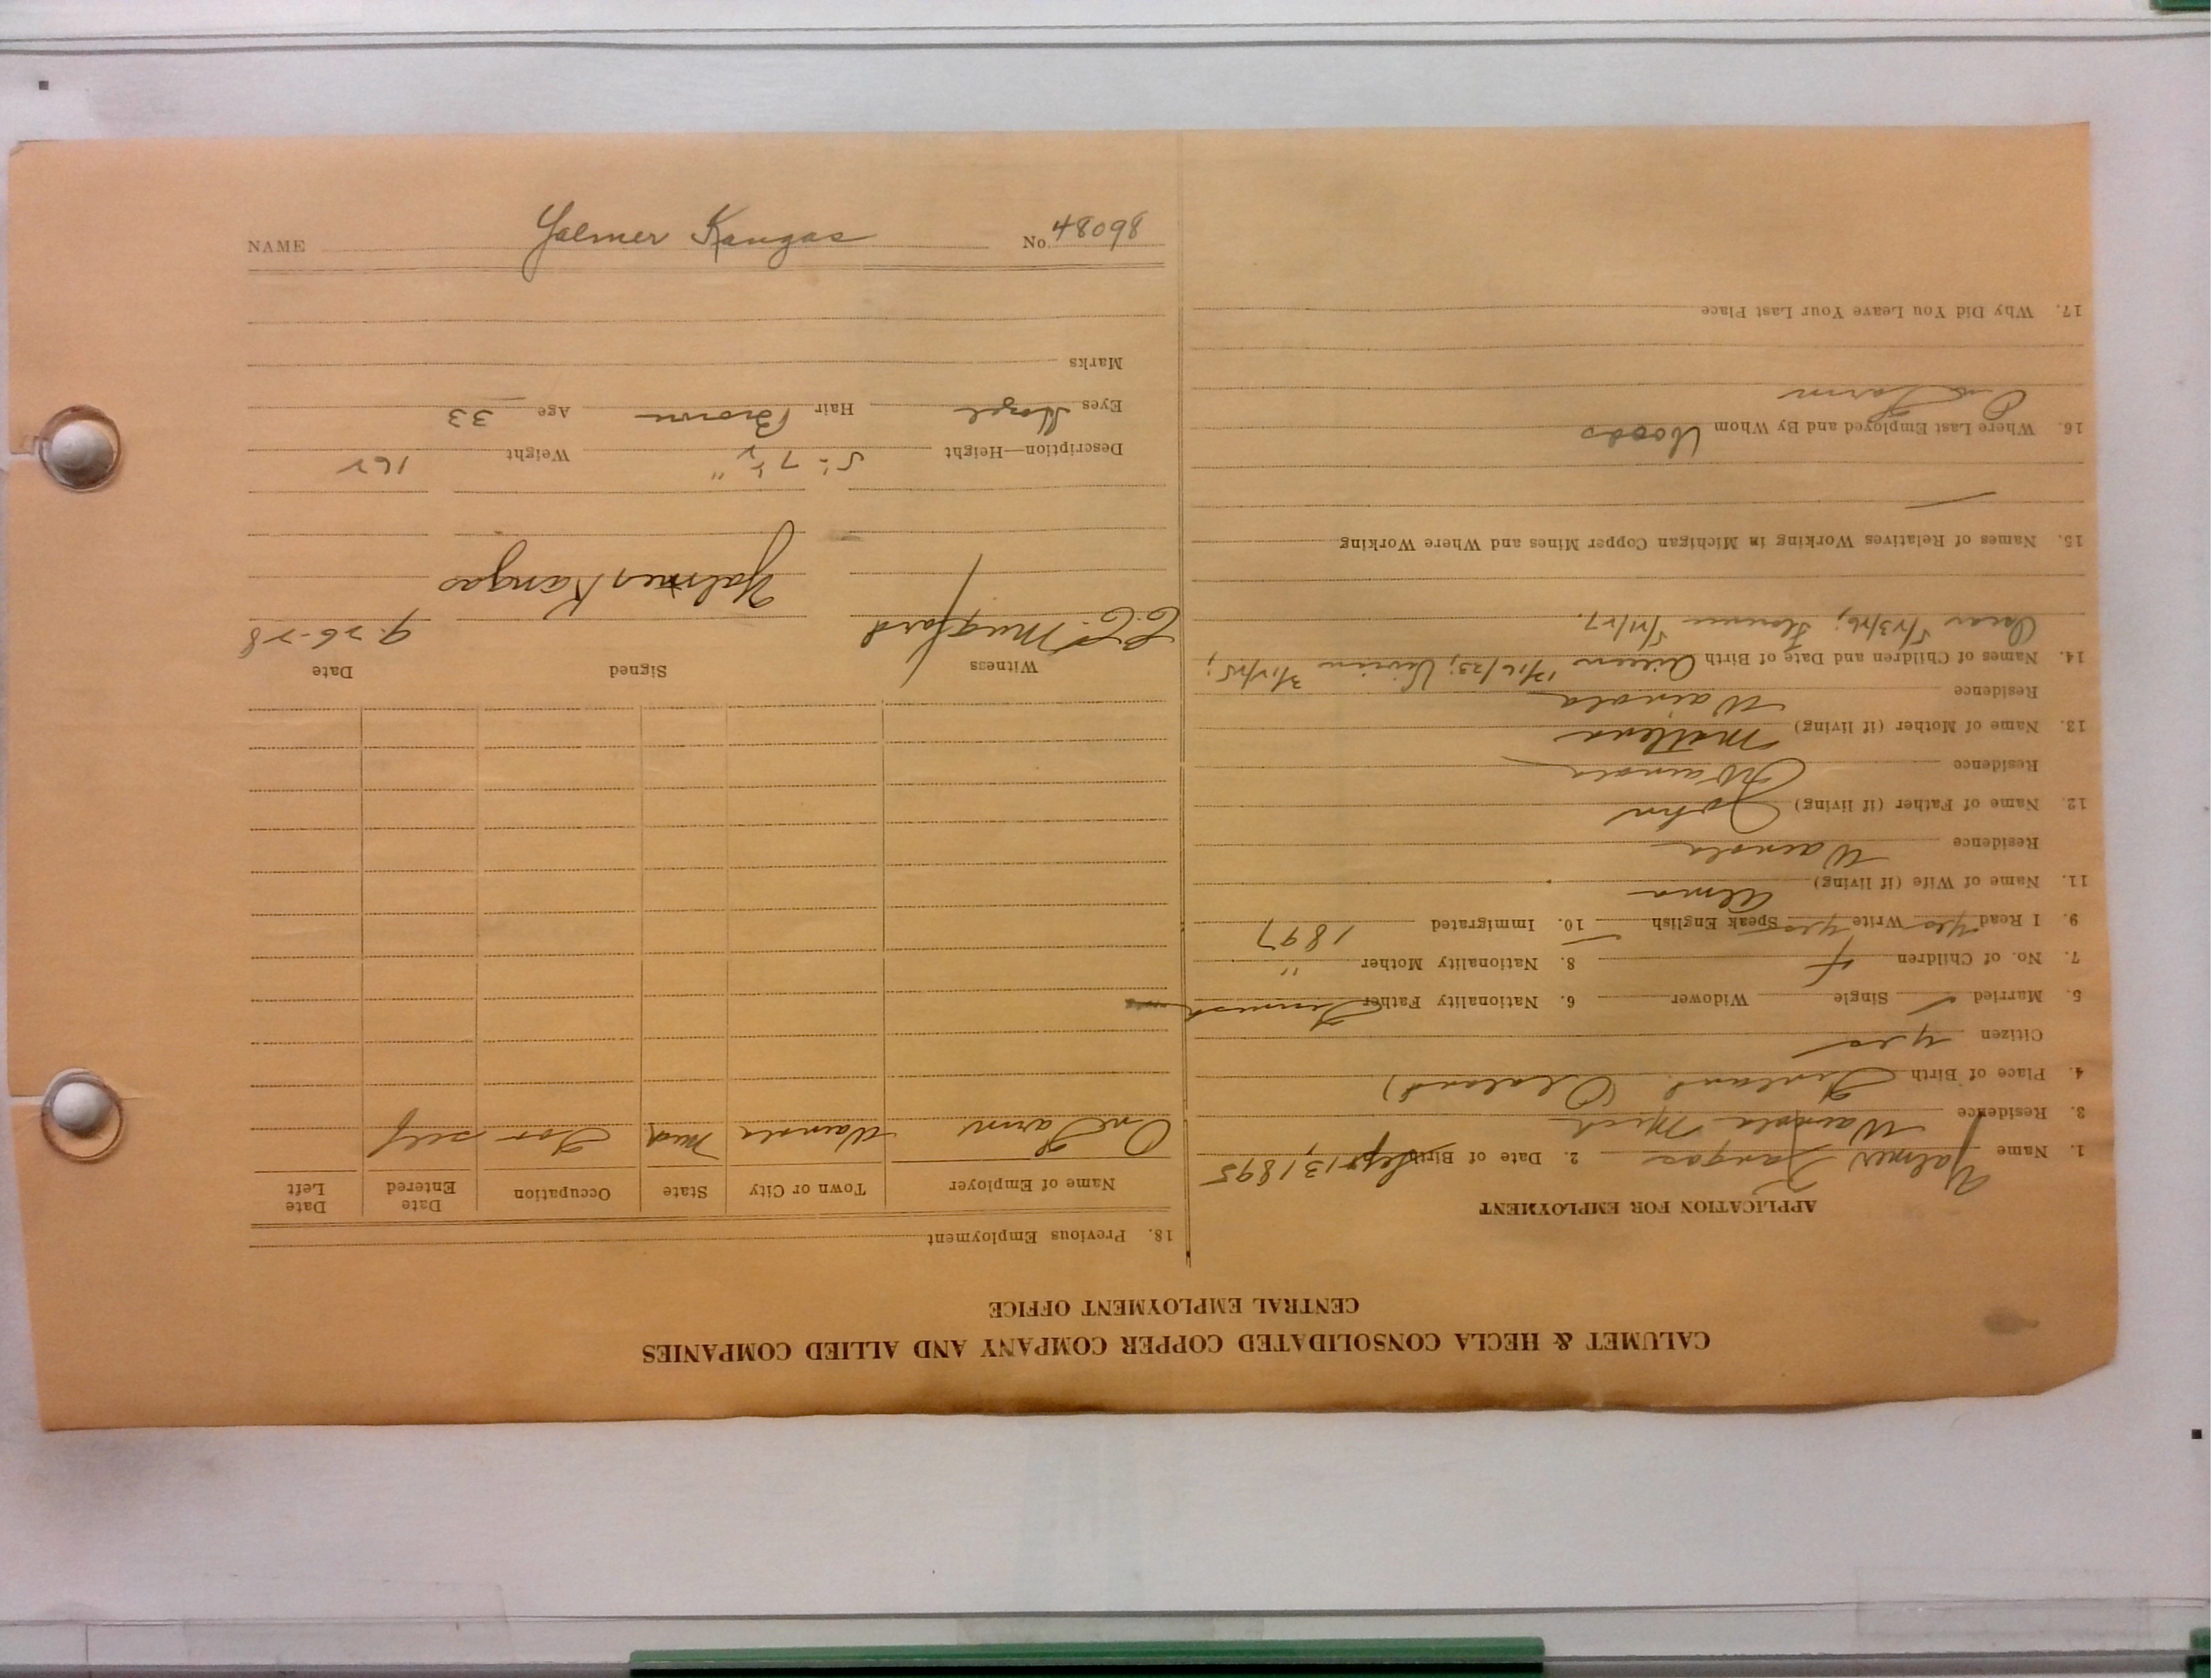 NAME Yalmer Kangas No. 48098
CALUMET & HECLA CONSOLIDATED COPPER COMPANY AND ALLIED COMPANIES
CENTRAL EMPLOYMENT OFFICE
APPLICATION FOR EMPLOYMENT
1. Name Yalmer Kangas 2. Date of Birth Sept 13, 1895
3. Residence Wainola Mich
4. Place of Birth Finland.
Citizen yes
5. Married ✓ Single Widower 6. Nationality Father Finnish
7. No. of Children 4 8. Nationality Mother "
9. I Read yes Write yes Speak English 10. Immigrated 1897
11. Name of Wife (if living) Alma
Residence Wainola
12. Name of Father (if living) John
Residence Wainola
13. Name of Mother (if living) Matlena
Residence Wainola
14. Names of Children and Date of Birth Aileen 12/16/23; 3/12/25;
Oscar 5/23/26; Florence 5/21/27.
15. Names of Relatives Working in Michigan Copper Mines and Where Working
16. Where Last Employed and By Whom Woods
Own Farm
17. Why Did You Leave Your Last Place
18. Previous Employment
Name of Employer Town or City State Occupation Date Entered Date Left
On Farm Wainola Mich For self
Witness Signed Date
C.C. Mugford Yalmer Kangas 9-26-28
Description—Height 5'-7½" Weight 162
Eyes Hazel Hair Brown Age 33
Marks